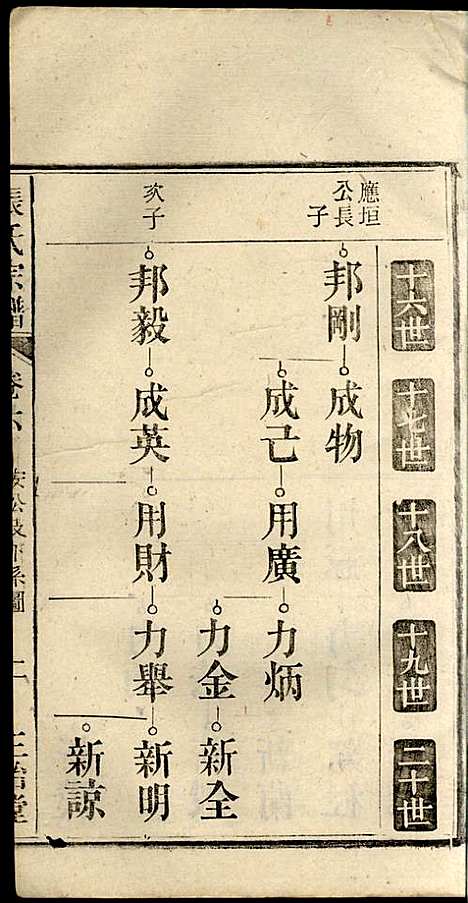 十六世
十七世
十八世
十九世
二十世
應垣
公長
子
邦剛
成物
成己
用廣
力炳
力金
新全
次子
邦毅
成英
用財
力舉
新明
新諒
張氏宗譜
卷六
公段下系圖
二